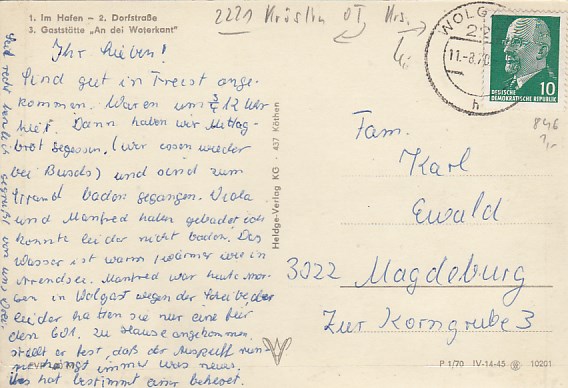 1. Im Hafen – 2. Dorfstraße
3. Gaststätte „An dei Waterkant"
2221 Kröslin OT
Ihr Lieben!
Sind gut in Freest ange-
kommen. Waren um 3/4 12 Uhr
hier. Dann haben wir Mittag-
brot gegessen, (wir essen wieder
bei Buschs) und sind zum
Strand baden gegangen. Viola
und Manfred haben gebadet, ich
konnte leider nicht baden. Das
Wasser ist warm, wärmer wie in
Arendsee. Manfred war heute mor-
gen in Wolgast wegen der Scheibe, der
leider hatten sie nur eine für
den 601. Zu Hause angekommen,
stellt er fest, daß der Auspuff
hängt immer was neues.
hat bestimmt einer behext.
Seid recht herzlich gegrüßt von uns Drei.
Heldge-Verlag KG · 437 Köthen
WOLGAST
22
11.-8.70
h
10
DEUTSCHE
DEMOKRATISCHE REPUBLIK
846
1,-
Fam.
Karl
Ewald
3022 Magdeburg
Zur Korngrube 3
P 1/70 IV-14-45 10201